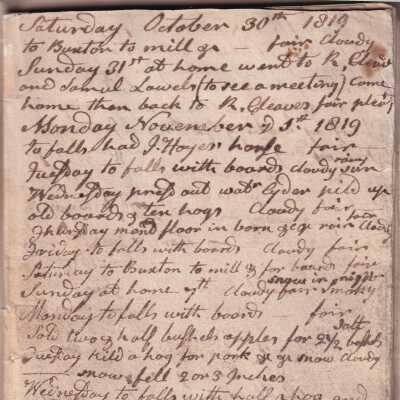 Saturday October 30th 1819
to Buxton to mill &c — fair cloudy
Sunday 31st at home went to R. Cleaves
and Samuel Lowels (to see a meeting) Come
home then back to R. Cleaves fair pleas
Monday Noveneber 1st 1819
to falls had J. Hayes horse fair
Tuesday to falls with boards cloudy rain
Wednesday prest out watr Cyder pild up
old boards & ten hogs cloudy fair
Thursday mend floor in born &c &c rain cloudy fair
Friday to falls with boards cloudy fair
Saturday to Buxton to mill & for boards fair
Sunday at home 7th cloudy fair smoky snow in night
Monday to falls with boards — fair
Sold two & half bushels apples for 2 1/2 bushels salt
Tuesday kild a hog for pork &c &c snow cloudy
— snow fell 2 or 3 Inches
Wednesday to falls with half hog and